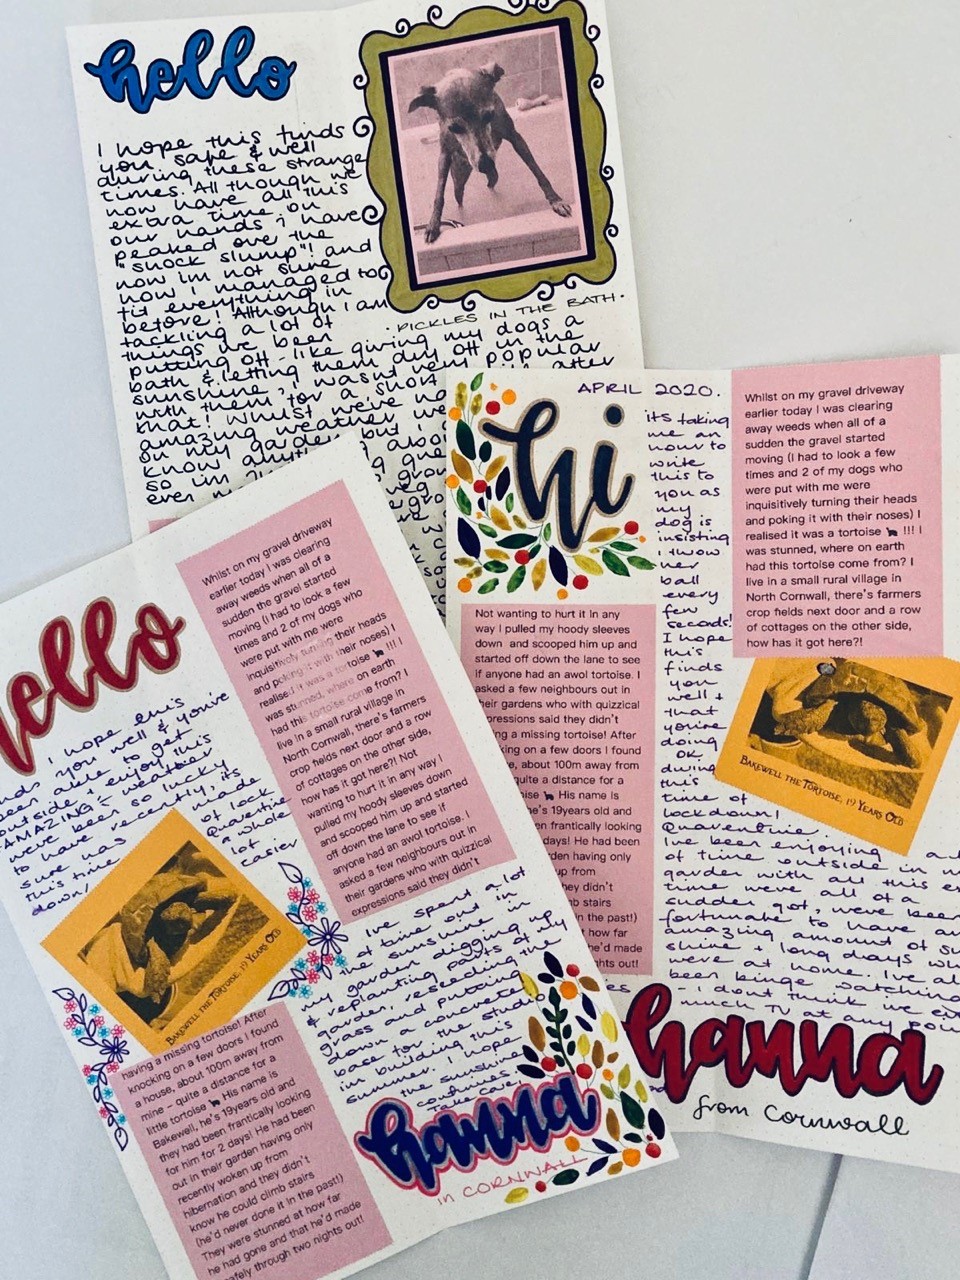 hello
I hope this finds
you safe & well
during these strange
times. All though we
now have all this
extra time on
our hands i have
peaked over the
"shock slump"! and
now im not sure
how I managed to
fit everything in
before! Although I am
tackling a lot of
things ive been
putting off - like giving my dogs a
bath & letting them dry off in the
sunshine, I wasn't very popular
with them for a short after
that! Whilst we've ha
amazing weather we
on my garden but I
know anything abou
so im
ever
· PICKLES IN THE BATH ·
APRIL 2020.
hi
its taking
me an
hour to
write
this to
you as
my
dog is
insisting
i throw
her
ball
every
few
seconds!
I hope
this
finds
you
well +
that
you're
doing
OK
during
this
time of
lockdown/
Quarentine.
Ive been enjoying a
of time outside in m
garden with all this e
time were all of a
sudden got, we've been
fortunate to have an
amazing amount of su
shine + long days wh
were at home. Ive al
been binge watching
- I dont think ive e
much TV at any poi
Whilst on my gravel driveway
earlier today I was clearing
away weeds when all of a
sudden the gravel started
moving (I had to look a few
times and 2 of my dogs who
were put with me were
inquisitively turning their heads
and poking it with their noses) I
realised it was a tortoise 🐢 !!! I
was stunned, where on earth
had this tortoise come from? I
live in a small rural village in
North Cornwall, there's farmers
crop fields next door and a row
of cottages on the other side,
how has it got here?!
Not wanting to hurt it In any
way I pulled my hoody sleeves
down and scooped him up and
started off down the lane to see
if anyone had an awol tortoise. I
asked a few neighbours out in
their gardens who with quizzical
pressions said they didn't
g a missing tortoise! After
king on a few doors I found
e, about 100m away from
quite a distance for a
ise 🐢 His name is
he's 19years old and
en frantically looking
days! He had been
den having only
up from
hey didn't
mb stairs
in the past!)
t how far
he'd made
ghts out!
BAKEWELL THE TORTOISE, 19 YEARS OLD
hanna
from Cornwall
hello
I hope this
you well & you've
been able to get
outside & enjoy this
AMAZING weather
we've been so lucky
to have recently, its
sure has made
this time of lock
down/ Quarentine
a whole
lot
easier
Whilst on my gravel driveway
earlier today I was clearing
away weeds when all of a
sudden the gravel started
moving (I had to look a few
times and 2 of my dogs who
were put with me were
inquisitively turning their heads
and poking it with their noses) I
realised it was a tortoise 🐢 !!! I
was stunned, where on earth
had this tortoise come from? I
live in a small rural village in
North Cornwall, there's farmers
crop fields next door and a row
of cottages on the other side,
how has it got here?! Not
wanting to hurt it In any way I
pulled my hoody sleeves down
and scooped him up and started
off down the lane to see if
anyone had an awol tortoise. I
asked a few neighbours out in
their gardens who with quizzical
expressions said they didn't
BAKEWELL THE TORTOISE, 19 YEARS OLD
having a missing tortoise! After
knocking on a few doors I found
a house, about 100m away from
mine – quite a distance for a
little tortoise 🐢 His name is
Bakewell, he's 19years old and
they had been frantically looking
for him for 2 days! He had been
out in their garden having only
recently woken up from
hibernation and they didn't
know he could climb stairs
(he'd never done it in the past!)
They were stunned at how far
he had gone and that he'd made
safely through two nights out!
Ive spent a lot
of time out in
the sunshine in
my garden digging up
& replanting parts of my
garden, reseeding the
grass and putting
down a concrete
base for the studio
im building this
summer. I hope
the sunshine
continues
Take care
hanna
in CORNWALL